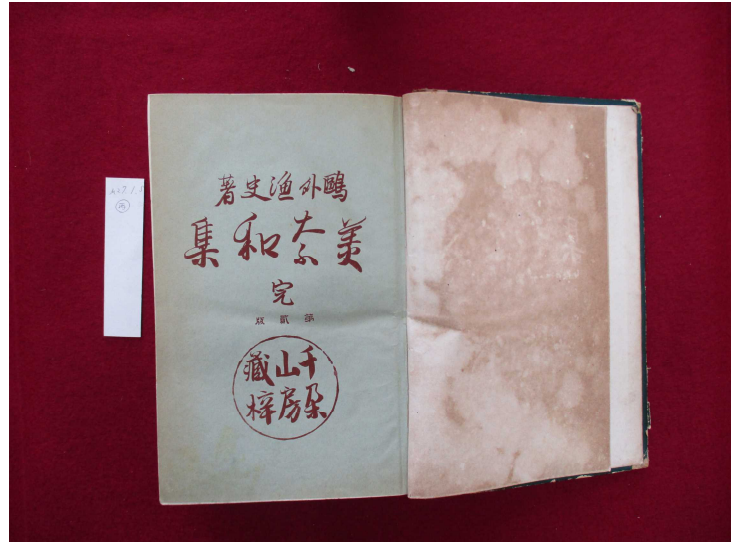 鷗外漁史著
美奈和集
完
第貳版
千朶
山房
藏梓